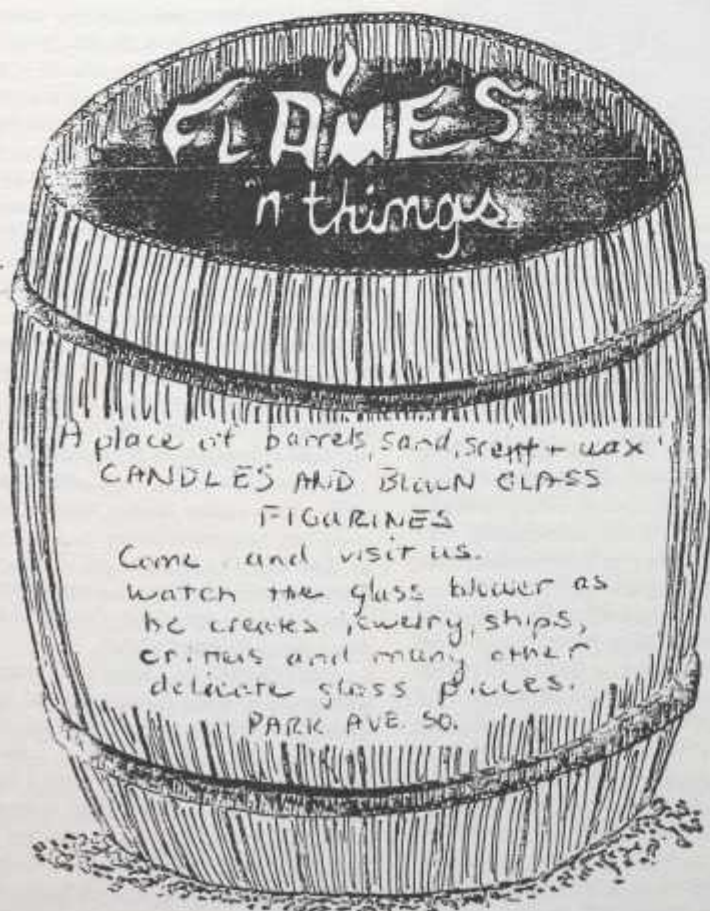 FLAMES
'n things
A place of barrels, sand, scent + wax
CANDLES AND BLOWN GLASS
FIGURINES
Come and visit us.
Watch the glass blower as
he creates jewelry, ships,
and many other
delicate glass pieces.
PARK AVE. SO.